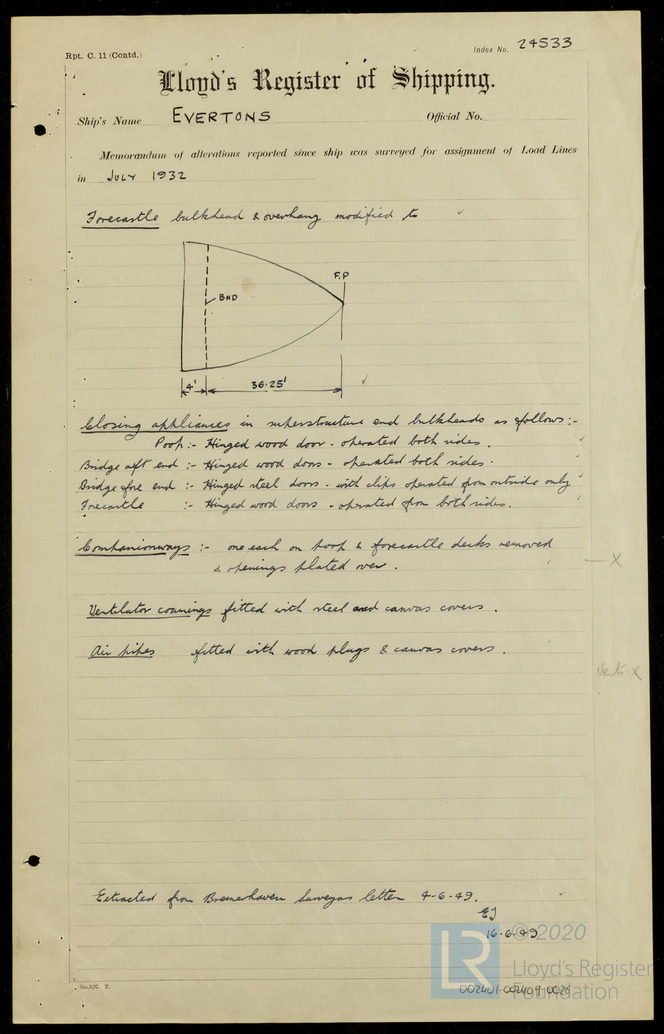 Rpt. C. 11 (Contd.)
Index No. 24533
Lloyd's Register of Shipping.
Ship's Name EVERTONS Official No.
Memorandum of alterations reported since ship was surveyed for assignment of Load Lines
in JULY 1932
Forecastle bulkhead & overhang modified to
F.P
BHD
4' 36.25'
Closing appliances in superstructure end bulkheads as follows:-
Poop:- Hinged wood door - operated both sides.
Bridge aft end :- Hinged wood doors - operated both sides.
Bridge fore end :- Hinged steel doors - with clips operated from outside only
Forecastle :- Hinged wood doors - operated from both sides.
Companionways :- one each on poop & forecastle decks removed
& openings plated over.
X
Ventilator coamings fitted with steel and canvas covers.
Air pipes fitted with wood plugs & canvas covers.
X
Extracted from Bremerhaven Surveyors letter 4-6-49.
EJ
16.6.49
© 2020
LR
Lloyd's Register
Foundation